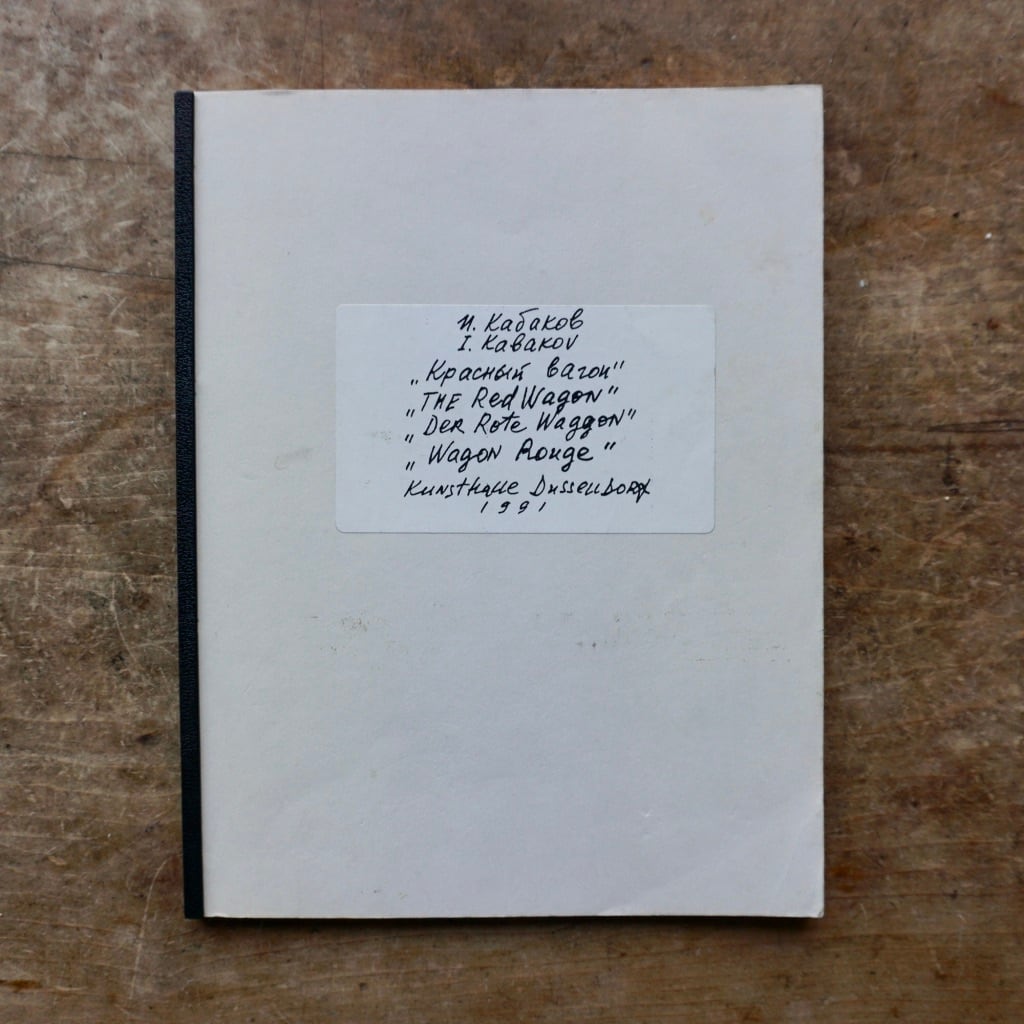 И. Кабаков
I. Kabakov
„Красный вагон"
„THE Red Wagon"
„Der Rote Waggon"
„Wagon Rouge"
Kunsthalle Dusseldorf
1991